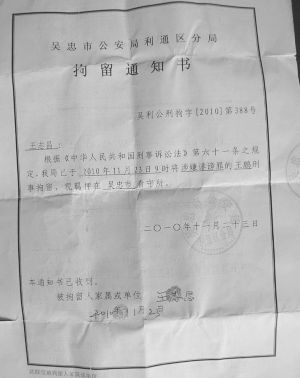 吴忠市公安局利通区分局
拘留通知书
吴利公刑拘字[2010]第388号
王志昌:
根据《中华人民共和国刑事诉讼法》第六十一条之规
定,我局已于2010年11月23日9时将涉嫌诽谤罪的王鹏刑
事拘留,现羁押在吴忠市看守所。
二〇一〇年十一月二十三日
本通知书已收到。
被拘留人家属或单位
年11月23日